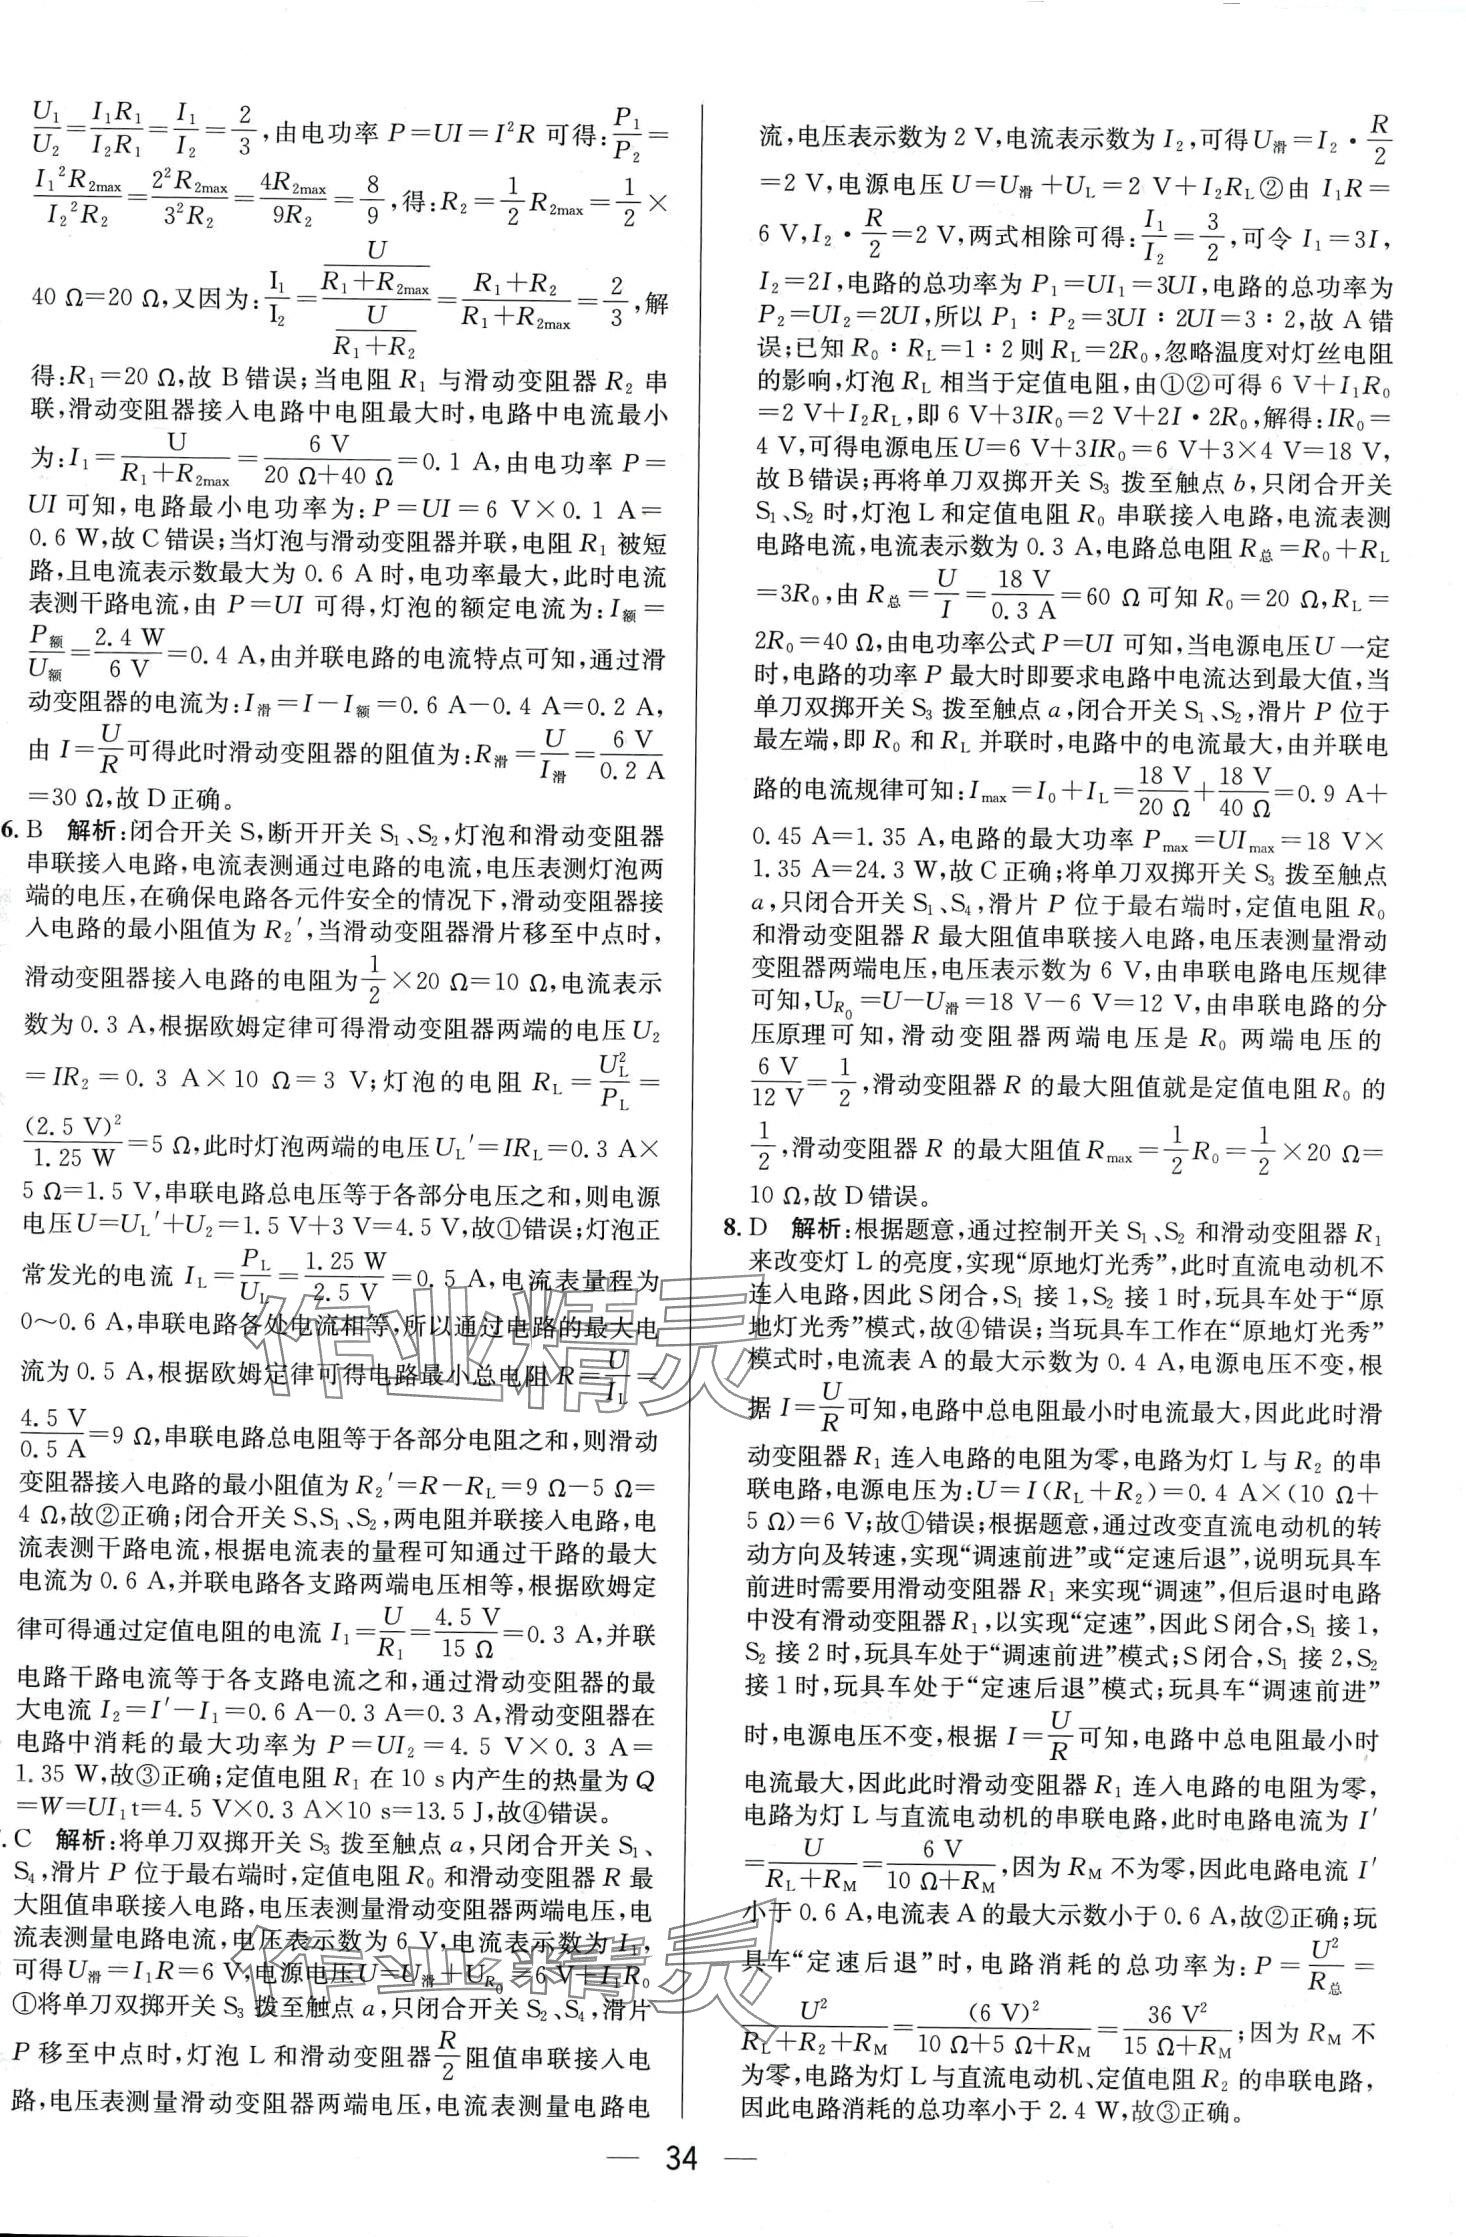 U₁/U₂=I₁R₁/I₂R₁=I₁/I₂=2/3,由电功率 P=UI=I²R 可得:P₁/P₂=
I₁²R₂max/I₂²R₂=2²R₂max/3²R₂=4R₂max/9R₂=8/9,得:R₂=1/2R₂max=1/2×
40 Ω=20 Ω,又因为:I₁/I₂=(U/(R₁+R₂max))/(U/(R₁+R₂))=(R₁+R₂)/(R₁+R₂max)=2/3,解
得:R₁=20 Ω,故 B错误;当电阻 R₁ 与滑动变阻器 R₂ 串
联,滑动变阻器接入电路中电阻最大时,电路中电流最小
为:I₁=U/(R₁+R₂max)=6 V/(20 Ω+40 Ω)=0.1 A,由电功率 P=
UI 可知,电路最小电功率为:P=UI=6 V×0.1 A=
0.6 W,故C错误;当灯泡与滑动变阻器并联,电阻 R₁ 被短
路,且电流表示数最大为 0.6 A时,电功率最大,此时电流
表测干路电流,由 P=UI 可得,灯泡的额定电流为:I额=
P额/U额=2.4 W/6 V=0.4 A,由并联电路的电流特点可知,通过滑
动变阻器的电流为:I滑=I-I额=0.6 A-0.4 A=0.2 A,
由 I=U/R可得此时滑动变阻器的阻值为:R滑=U/I滑=6 V/0.2 A
=30 Ω,故 D正确。
6. B 解析:闭合开关 S,断开开关 S₁、S₂,灯泡和滑动变阻器
串联接入电路,电流表测通过电路的电流,电压表测灯泡两
端的电压,在确保电路各元件安全的情况下,滑动变阻器接
入电路的最小阻值为 R₂′,当滑动变阻器滑片移至中点时,
滑动变阻器接入电路的电阻为1/2×20 Ω=10 Ω,电流表示
数为 0.3 A,根据欧姆定律可得滑动变阻器两端的电压 U₂
=IR₂=0.3 A×10 Ω=3 V;灯泡的电阻 R_L=U_L²/P_L=
(2.5 V)²/1.25 W=5 Ω,此时灯泡两端的电压 U_L′=IR_L=0.3 A×
5 Ω=1.5 V,串联电路总电压等于各部分电压之和,则电源
电压U=U_L′+U₂=1.5 V+3 V=4.5 V,故①错误;灯泡正
常发光的电流 I_L=P_L/U_L=1.25 W/2.5 V=0.5 A,电流表量程为
0～0.6 A,串联电路各处电流相等,所以通过电路的最大电
流为 0.5 A,根据欧姆定律可得电路最小总电阻 R=U/I_L=
4.5 V/0.5 A=9 Ω,串联电路总电阻等于各部分电阻之和,则滑动
变阻器接入电路的最小阻值为 R₂′=R-R_L=9 Ω-5 Ω=
4 Ω,故②正确;闭合开关 S、S₁、S₂,两电阻并联接入电路,电
流表测干路电流,根据电流表的量程可知通过干路的最大
电流为 0.6 A,并联电路各支路两端电压相等,根据欧姆定
律可得通过定值电阻的电流 I₁=U/R₁=4.5 V/15 Ω=0.3 A,并联
电路干路电流等于各支路电流之和,通过滑动变阻器的最
大电流 I₂=I′-I₁=0.6 A-0.3 A=0.3 A,滑动变阻器在
电路中消耗的最大功率为 P=UI₂=4.5 V×0.3 A=
1.35 W,故③正确;定值电阻 R₁ 在 10 s内产生的热量为 Q
=W=UI₁t=4.5 V×0.3 A×10 s=13.5 J,故④错误。
. C 解析:将单刀双掷开关 S₃ 拨至触点 a,只闭合开关 S₁、
S₄,滑片 P 位于最右端时,定值电阻 R₀ 和滑动变阻器 R 最
大阻值串联接入电路,电压表测量滑动变阻器两端电压,电
流表测量电路电流,电压表示数为 6 V,电流表示数为 I₁,
可得U滑=I₁R=6 V,电源电压U=U滑+U_R₀=6 V+I₁R₀
①将单刀双掷开关 S₃ 拨至触点 a,只闭合开关 S₂、S₄,滑片
P 移至中点时,灯泡 L 和滑动变阻器R/2阻值串联接入电
路,电压表测量滑动变阻器两端电压,电流表测量电路电
流,电压表示数为 2 V,电流表示数为 I₂,可得U滑=I₂·R/2
=2 V,电源电压 U=U滑+U_L=2 V+I₂R_L②由 I₁R=
6 V,I₂·R/2=2 V,两式相除可得:I₁/I₂=3/2,可令 I₁=3I,
I₂=2I,电路的总功率为 P₁=UI₁=3UI,电路的总功率为
P₂=UI₂=2UI,所以 P₁∶P₂=3UI∶2UI=3∶2,故 A 错
误;已知 R₀∶R_L=1∶2 则 R_L=2R₀,忽略温度对灯丝电阻
的影响,灯泡 R_L 相当于定值电阻,由①②可得 6 V+I₁R₀
=2 V+I₂R_L,即 6 V+3IR₀=2 V+2I·2R₀,解得:IR₀=
4 V,可得电源电压 U=6 V+3IR₀=6 V+3×4 V=18 V,
故 B错误;再将单刀双掷开关 S₃ 拨至触点 b,只闭合开关
S₁、S₂ 时,灯泡 L 和定值电阻 R₀ 串联接入电路,电流表测
电路电流,电流表示数为 0.3 A,电路总电阻 R总=R₀+R_L
=3R₀,由 R总=U/I=18 V/0.3 A=60 Ω 可知 R₀=20 Ω,R_L=
2R₀=40 Ω,由电功率公式 P=UI 可知,当电源电压 U 一定
时,电路的功率 P 最大时即要求电路中电流达到最大值,当
单刀双掷开关 S₃ 拨至触点 a,闭合开关 S₁、S₂,滑片 P 位于
最左端,即 R₀ 和 R_L 并联时,电路中的电流最大,由并联电
路的电流规律可知:Imax=I₀+I_L=18 V/20 Ω+18 V/40 Ω=0.9 A+
0.45 A=1.35 A,电路的最大功率 Pmax=UImax=18 V×
1.35 A=24.3 W,故 C正确;将单刀双掷开关 S₃ 拨至触点
a,只闭合开关 S₁、S₄,滑片 P 位于最右端时,定值电阻 R₀
和滑动变阻器 R 最大阻值串联接入电路,电压表测量滑动
变阻器两端电压,电压表示数为 6 V,由串联电路电压规律
可知,U_R₀=U-U滑=18 V-6 V=12 V,由串联电路的分
压原理可知,滑动变阻器两端电压是 R₀ 两端电压的
6 V/12 V=1/2,滑动变阻器 R 的最大阻值就是定值电阻 R₀ 的
1/2,滑动变阻器 R 的最大阻值 Rmax=1/2R₀=1/2×20 Ω=
10 Ω,故 D错误。
8. D 解析:根据题意,通过控制开关 S₁、S₂ 和滑动变阻器 R₁
来改变灯 L 的亮度,实现“原地灯光秀”,此时直流电动机不
连入电路,因此 S闭合,S₁ 接 1,S₂ 接 1 时,玩具车处于“原
地灯光秀”模式,故④错误;当玩具车工作在“原地灯光秀”
模式时,电流表 A 的最大示数为 0.4 A,电源电压不变,根
据 I=U/R可知,电路中总电阻最小时电流最大,因此此时滑
动变阻器 R₁ 连入电路的电阻为零,电路为灯 L 与 R₂ 的串
联电路,电源电压为:U=I(R_L+R₂)=0.4 A×(10 Ω+
5 Ω)=6 V;故①错误;根据题意,通过改变直流电动机的转
动方向及转速,实现“调速前进”或“定速后退”,说明玩具车
前进时需要用滑动变阻器 R₁ 来实现“调速”,但后退时电路
中没有滑动变阻器 R₁,以实现“定速”,因此 S闭合,S₁ 接 1,
S₂ 接 2 时,玩具车处于“调速前进”模式;S闭合,S₁ 接 2,S₂
接 1 时,玩具车处于“定速后退”模式;玩具车“调速前进”
时,电源电压不变,根据 I=U/R可知,电路中总电阻最小时
电流最大,因此此时滑动变阻器 R₁ 连入电路的电阻为零,
电路为灯 L 与直流电动机的串联电路,此时电路电流为 I′
=U/(R_L+R_M)=6 V/(10 Ω+R_M),因为 R_M 不为零,因此电路电流 I′
小于 0.6 A,电流表 A 的最大示数小于 0.6 A,故②正确;玩
具车“定速后退”时,电路消耗的总功率为:P=U²/R总=
U²/(R_L+R₂+R_M)=(6 V)²/(10 Ω+5 Ω+R_M)=36 V²/(15 Ω+R_M);因为 R_M 不
为零,电路为灯 L 与直流电动机、定值电阻 R₂ 的串联电路,
因此电路消耗的总功率小于 2.4 W,故③正确。
作业精灵
作业精灵
— 34 —